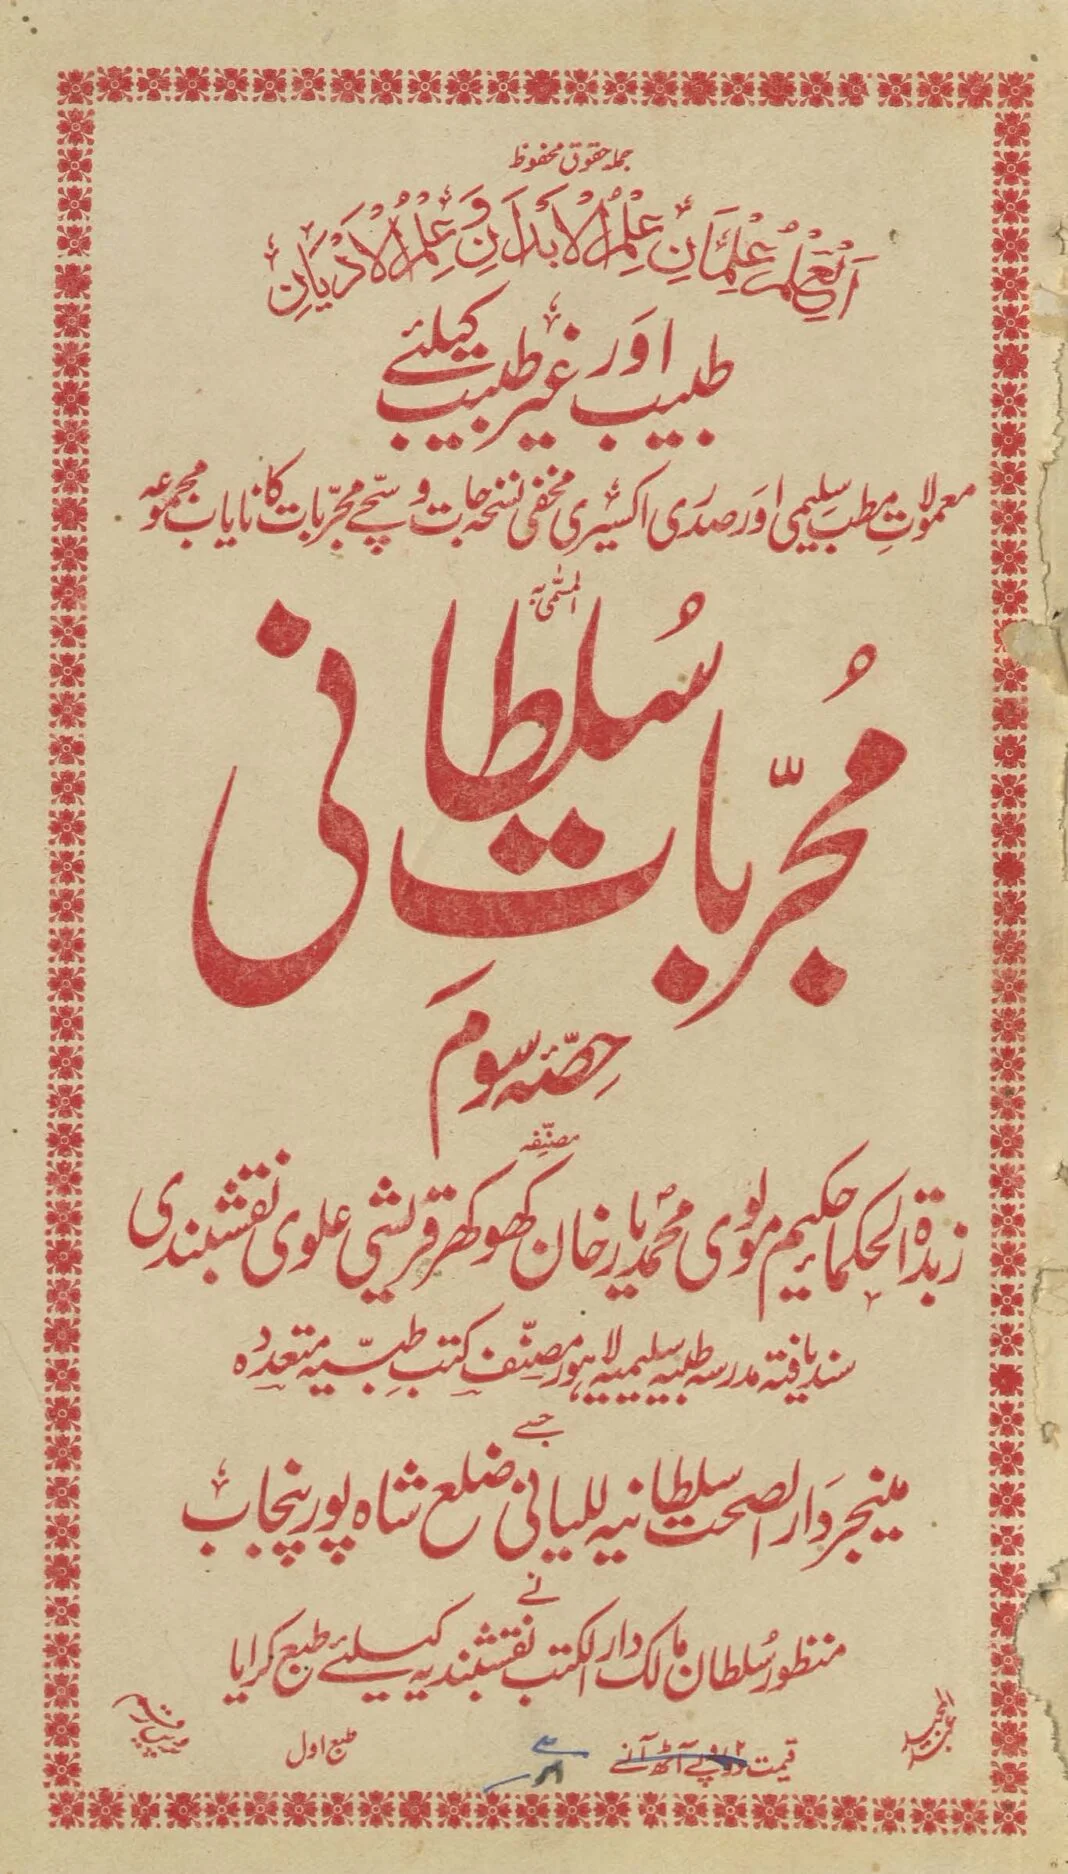 جملہ حقوق محفوظ
اَلْعِلْمُ عِلْمَانِ عِلْمُ الْاَبْدَانِ وَ عِلْمُ الْاَدْيَانِ
طبیب اور غیر طبیب کیلئے
معمولاتِ مطب سلیمی اور صدری اکسیری مخفی نسخہ جات و سچے مجرّبات کا نایاب مجموعہ
المسمّٰی بہ
مُجرّباتِ سُلطانی
حصّہ سوم
مصنّفہ
زبدۃ الحکما حکیم مولوی محمد یار خان کھوکھر قریشی علوی نقشبندی
سند یافتہ مدرسہ طبیہ سلیمیہ لاہور مصنّف کتب طبّیہ متعددہ
جسے
مینجر دار الصحت سلطانیہ للیانی ضلع شاہ پور پنجاب
نے
منظور سُلطان مالک دار الکتب نقشبندیہ کیلئے طبع کرایا
عبد المجید
قیمت دو روپے آٹھ آنے
طبع اول